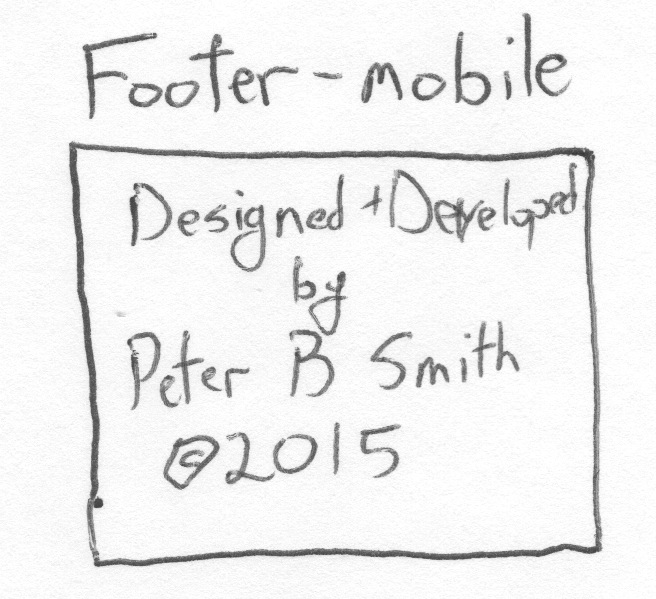 Footer - mobile
Designed + Developed
by
Peter B Smith
©2015